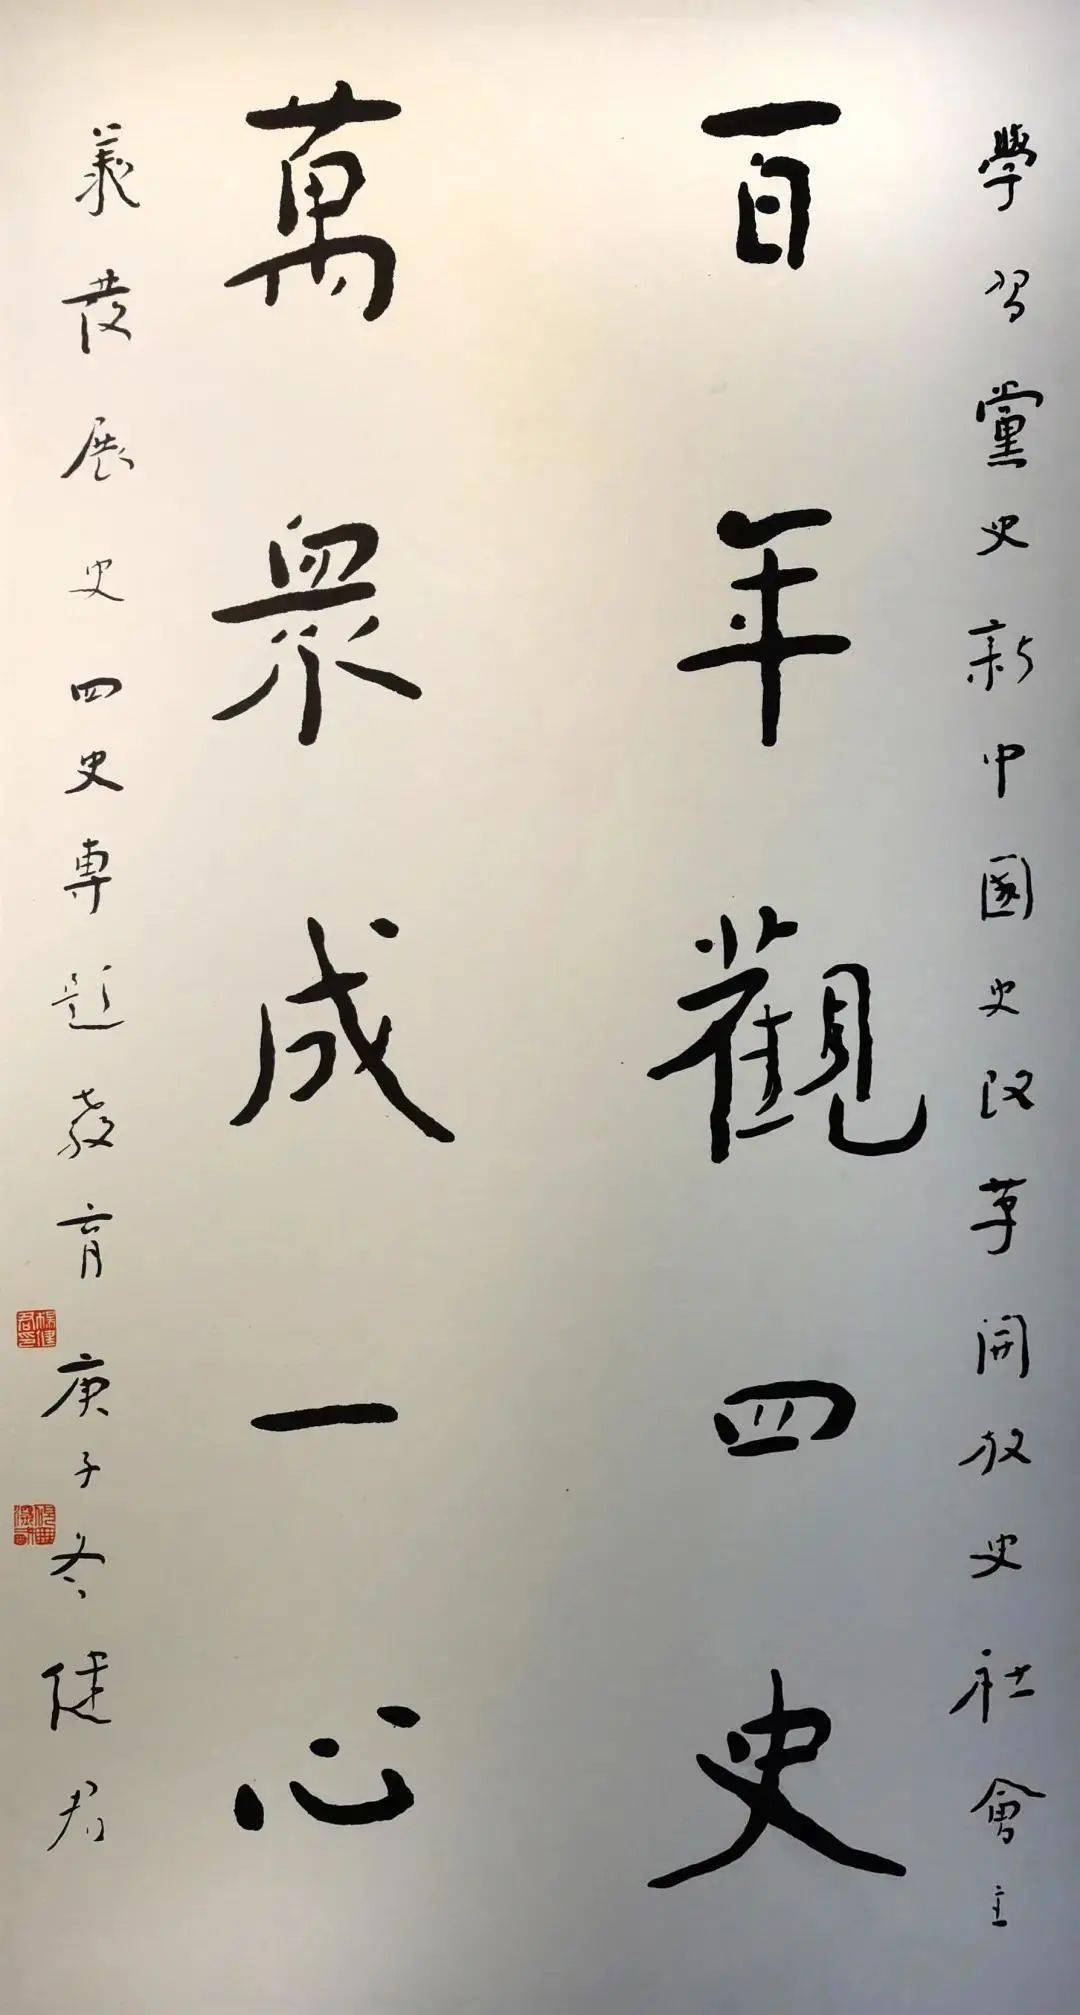 學習黨史新中國史改革開放史社會主
百年觀四史
萬眾成一心
義發展史四史專題教育庚子冬健君